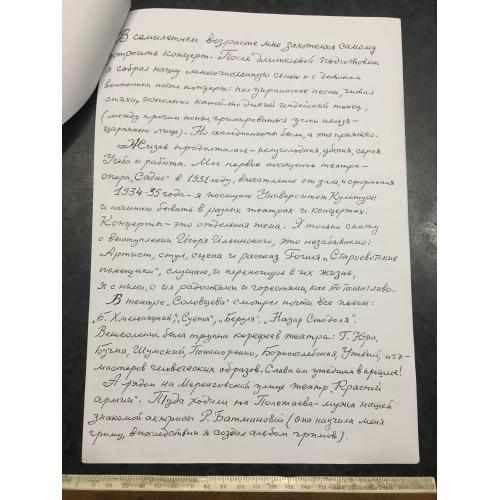 В семилетнем возрасте мне захотелось самому
устроить концерт. После длительной подготовки
я собрал нашу многочисленную семью и с детским
волнением начал концерт: пел украинские песни, читал
стихи, исполнял какой-то дикий индейский танец,
(между прочим понял, гримироваться углем нельзя-
царапает лицо). Но аплодисменты были, а это приятно.
Жизнь продолжалась - полуголодная, убогая, серая
Учеба и работа. Мое первое посещение театра-
опера "Садко" в 1931 году, впечатление от зала, и оформления
1934-35 года - я посещаю Университет Культуры
и начинаю бывать в разных театрах и концертах.
Концерты - это отдельная тема. Я только скажу
о выступлении Игоря Ильинского, это незабываемо:
Артист, стул, сцена и рассказ Гоголя "Старосветские
помещики", слушаю, и переношусь в их жизнь,
я с ними, с их радостями и горестями, как то талантливо...
В театре "Соловцева" смотрел почти все пьесы:
"Б. Хмельницкий", "Суета", "Беруля", "Назар Стодоля".
Великолепна была труппа корифеев театра: Г. Юра,
Бучма, Шумский, Пономаренко, Борисоглебская, Ужвий, и т.д-
мастеров человеческих образов. Слава им ушедшим в прошлое!
А рядом на Меринговской улице театр "Красной
армии". Туда ходили на Полежаева - мужа нашей
знакомой актрисы Р. Батмановой (она научила меня
гриму, впоследствии я создал альбом гримов).